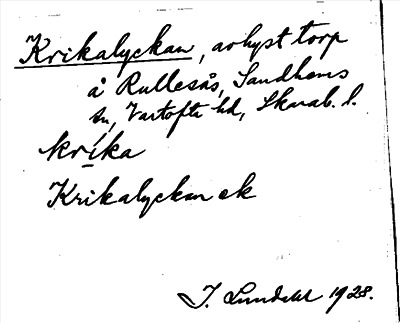 Krikalyckan, avhyst torp
å Rullesås, Sandhems
sn, Vartofta hd, Skarab. l.
krika
Krikalyckan ek
I. Lundahl 1928.